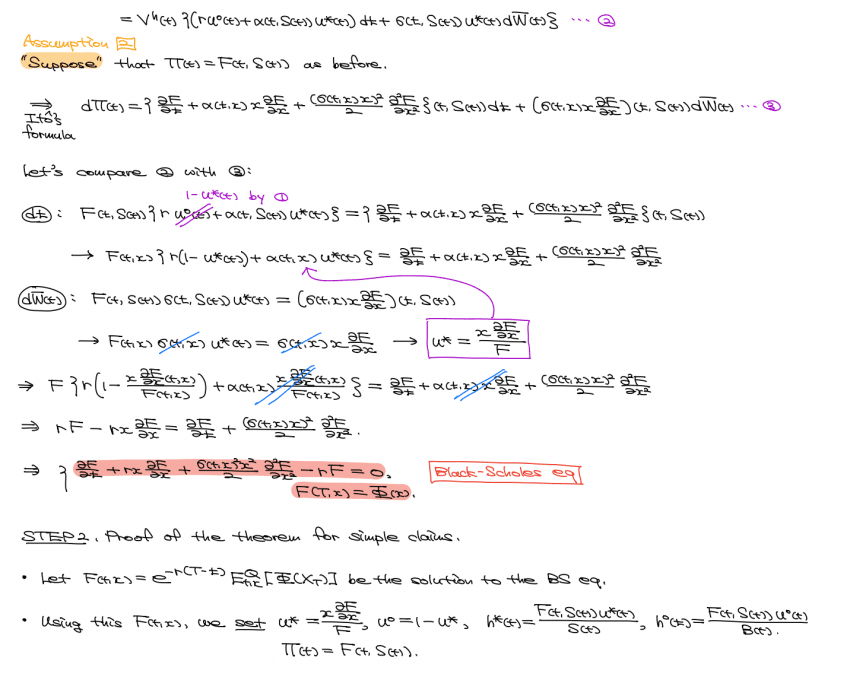 = V^h(t) {(r u°(t) + α(t, S(t)) u*(t)) dt + σ(t, S(t)) u*(t) dW̅(t)} ··· ②
Assumption 2
"Suppose" that Π(t) = F(t, S(t)) as before.
⇒ Itô's formula dΠ(t) = {∂F/∂t + α(t,x) x ∂F/∂x + (σ(t,x)x)²/2 ∂²F/∂x²}(t, S(t)) dt + (σ(t,x) x ∂F/∂x)(t, S(t)) dW̅(t) ··· ③
Let's compare ② with ③:
1-u*(t) by ①
dt : F(t, S(t)) {r u°(t) + α(t, S(t)) u*(t)} = {∂F/∂t + α(t,x) x ∂F/∂x + (σ(t,x)x)²/2 ∂²F/∂x²}(t, S(t))
→ F(t,x) {r(1-u*(t)) + α(t,x) u*(t)} = ∂F/∂t + α(t,x) x ∂F/∂x + (σ(t,x)x)²/2 ∂²F/∂x²
dW̅(t) : F(t, S(t)) σ(t, S(t)) u*(t) = (σ(t,x) x ∂F/∂x)(t, S(t))
→ F(t,x) σ(t,x) u*(t) = σ(t,x) x ∂F/∂x → u* = x ∂F/∂x / F
⇒ F {r(1 - x ∂F/∂x(t,x) / F(t,x)) + α(t,x) x ∂F/∂x(t,x) / F(t,x)} = ∂F/∂t + α(t,x) x ∂F/∂x + (σ(t,x)x)²/2 ∂²F/∂x²
⇒ rF - rx ∂F/∂x = ∂F/∂t + (σ(t,x)x)²/2 ∂²F/∂x².
⇒ { ∂F/∂t + rx ∂F/∂x + σ(t,x)²x²/2 ∂²F/∂x² - rF = 0, Black-Scholes eq
F(T,x) = Φ(x).
STEP 2. Proof of the theorem for simple claims.
· Let F(t,x) = e^{-r(T-t)} E^Q_{t,x}[Φ(X_T)] be the solution to the BS eq.
· Using this F(t,x), we set u* = x ∂F/∂x / F, u° = 1-u*, h*(t) = F(t, S(t)) u*(t) / S(t), h°(t) = F(t, S(t)) u°(t) / B(t).
Π(t) = F(t, S(t)).